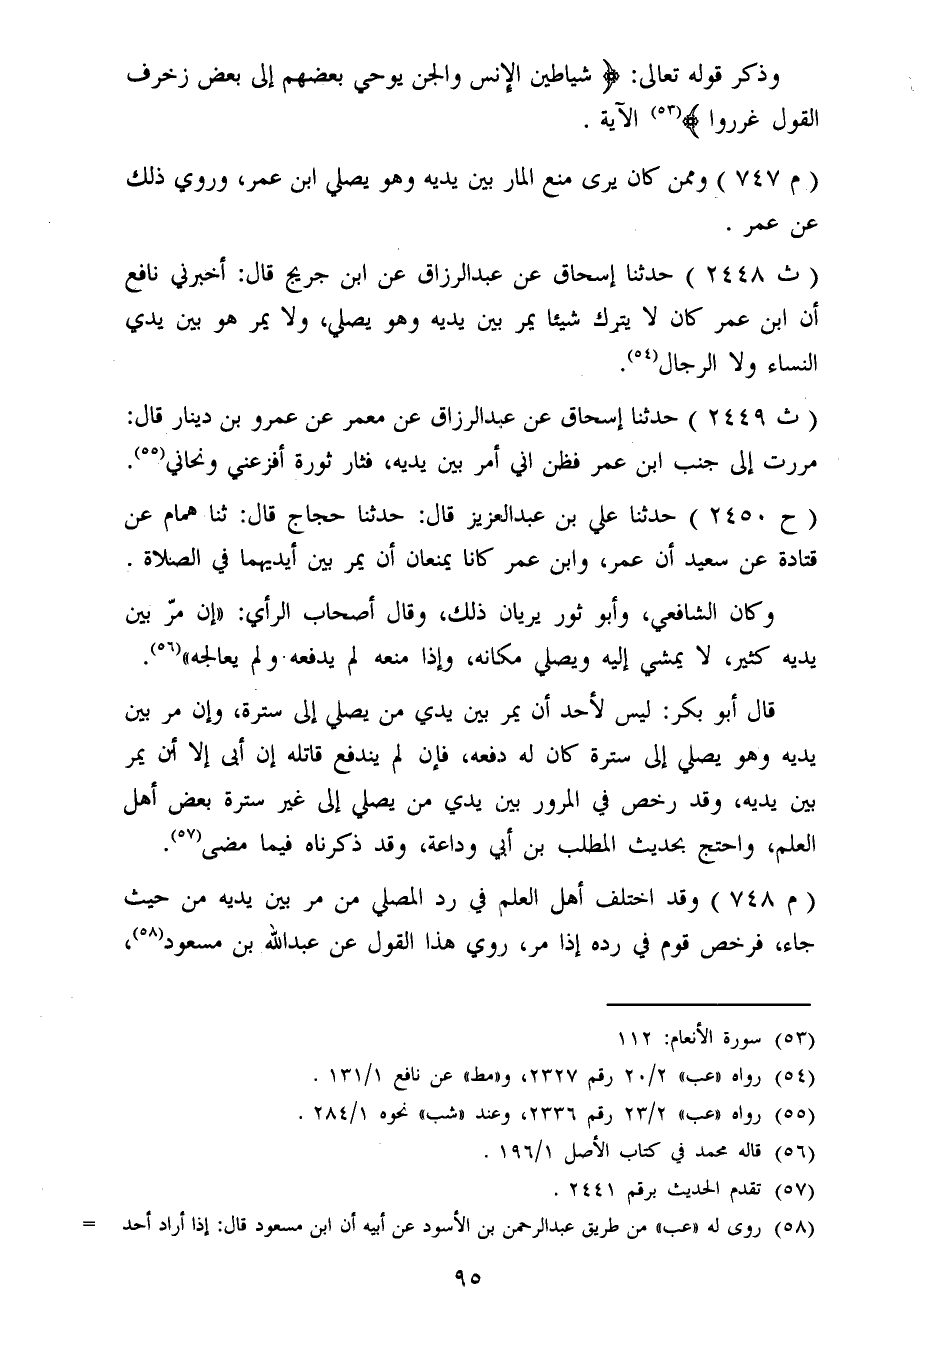 وذكر قوله تعالى: ﴿ شياطين الإنس والجن يوحي بعضهم إلى بعض زخرف
القول غرروا ﴾(٥٣) الآية .
( م ٧٤٧ ) وممن كان يرى منع المار بين يديه وهو يصلي ابن عمر، وروي ذلك
عن عمر .
( ث ٢٤٤٨ ) حدثنا إسحاق عن عبدالرزاق عن ابن جريج قال: أخبرني نافع
أن ابن عمر كان لا يترك شيئا يمر بين يديه وهو يصلي، ولا يمر هو بين يدي
النساء ولا الرجال(٥٤).
( ث ٢٤٤٩ ) حدثنا إسحاق عن عبدالرزاق عن معمر عن عمرو بن دينار قال:
مررت إلى جنب ابن عمر فظن اني أمر بين يديه، فثار ثورة أفزعني ونحاني(٥٥).
( ح ٢٤٥٠ ) حدثنا علي بن عبدالعزيز قال: حدثنا حجاج قال: ثنا همام عن
قتادة عن سعيد أن عمر، وابن عمر كانا يمنعان أن يمر بين أيديهما في الصلاة .
وكان الشافعي، وأبو ثور يريان ذلك، وقال أصحاب الرأي: «إن مرّ بين
يديه كثير، لا يمشي إليه ويصلي مكانه، وإذا منعه لم يدفعه ولم يعالجه»(٥٦).
قال أبو بكر: ليس لأحد أن يمر بين يدي من يصلي إلى سترة، وإن مر بين
يديه وهو يصلي إلى سترة كان له دفعه، فإن لم يندفع قاتله إن أبى إلا أن يمر
بين يديه، وقد رخص في المرور بين يدي من يصلي إلى غير سترة بعض أهل
العلم، واحتج بحديث المطلب بن أبي وداعة، وقد ذكرناه فيما مضى(٥٧).
( م ٧٤٨ ) وقد اختلف أهل العلم في رد المصلي من مر بين يديه من حيث
جاء، فرخص قوم في رده إذا مر، روي هذا القول عن عبدالله بن مسعود(٥٨)،
(٥٣) سورة الأنعام: ١١٢
(٥٤) رواه «عب» ٢٠/٢ رقم ٢٣٢٧، و«مط» عن نافع ١٣١/١ .
(٥٥) رواه «عب» ٢٣/٢ رقم ٢٣٣٦، وعند «شب» نحوه ٢٨٤/١ .
(٥٦) قاله محمد في كتاب الأصل ١٩٦/١ .
(٥٧) تقدم الحديث برقم ٢٤٤١ .
(٥٨) روى له «عب» من طريق عبدالرحمن بن الأسود عن أبيه أن ابن مسعود قال: إذا أراد أحد =
٩٥